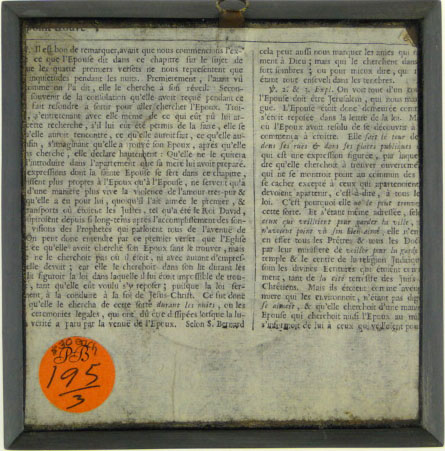 point trouvé
Il est bon de remarquer, avant que nous commencions l'ex-
ce que l'Epouse dit dans ce chapitre sur le sujet de
que les quatre premiers versets ne nous representent que
inquiétudes pendant les nuits. Premierement, l'aiant vû
comme on l'a dit, elle le cherche à son réveil. Secon-
souvenir de la consolation qu'elle avoit reçuë pendant ce
fait resoudre à sortir pour aller chercher l'Epoux. Troi-
s'entretenant avec elle même de ce qui eût pû lui ar-
cette recherche, s'il lui eût été permis de la faire, elle se
elle auroit rencontré, ce qu'elle auroit fait, ce qu'elle au-
fin, s'imaginant qu'elle a trouvé son Epoux, après qu'elle
cherché, elle déclare hautement: Qu'elle ne le quittera
introduire dans l'appartement que sa mere lui avoit préparé.
expressions dont la sainte Epouse se sert dans ce chapitre,
issent plus propres à l'Epoux qu'à l'Epouse, ne servent qu'à
d'une maniere plus vive la violence de l'amour très-pur &
qu'elle a eu pour lui, quoiqu'il l'ait aimée le premier, &
transports où étoient les Justes, tel qu'a été le Roi David,
soupiroient depuis si long-tems après l'accomplissement des
visions des Prophétes qui parloient tous de l'avenement de
On peut donc entendre par ce premier verset que l'Eglise
ce qu'elle avoit cherché son Epoux sans le trouver, mais
ne le cherchoit pas où il étoit, ni avec autant d'empres-
elle devoit; car elle le cherchoit dans son lit durant les
la figure de la loi dans laquelle il lui étoit impossible de trou-
tant qu'elle eût voulu s'y reposer; puisque la loi ser-
ment à la conduire à la foi de Jesus-Christ. Ce fut donc
qu'elle le chercha de cette sorte durant les nuits, ou les
ceremonies legales, qui ont dû être dissipées lorsque la lu-
verité a paru par la venue de l'Epoux. Selon S. Bernard
cela peut aussi nous marquer les ames qui
ment à Dieu; mais qui le cherchent dans
sorts sombres; ou pour mieux dire, qui
étant tout ensevelis dans les tenebres.
℣. 2. & 3. Expl. On voit tout d'un
l'Epouse doit être Jerusalem, qui nous mar-
que. L'Epouse étoit donc demeurée
s'étoit reposée dans la lettre de la loi. M
où l'Epoux avoit resolu de se découvrir à
commença à croître. Elle fait le tour de
dans les ruës & dans les places publiques
qui est une expression figurée, par laquel-
dre qu'elle cherchoit à trouver ouvertement
qui ne se montroit point au commun
se cacher excepté à ceux qui appartiennent
devoient apartenir, c'est-à-dire, à tous
loi. C'est pourquoi elle ne peut trouver
cette sorte. Et s'étant même adressée, sel-
à ceux qui veilloient pour garder la ville,
n'aïant point vû son bien-aimé, elle n'en
en effet tous les Prêtres & tous les Doc-
par leur ministere de veiller pour la garde
temple & le centre de la religion Judaïque
sont les divines Ecritures
ment, tant de la cité terrestre des Juifs
Chrétiens. Mais ils étoient eux mêmes
mere qui les environnoit, n'étant pas dig-
si aimée, & qu'elle cherchoit d'une mani-
Epouse qui cherchoit ainsi l'Epoux au mi-
s'informant de lui à ceux qui veilloient pour
PB
195/3